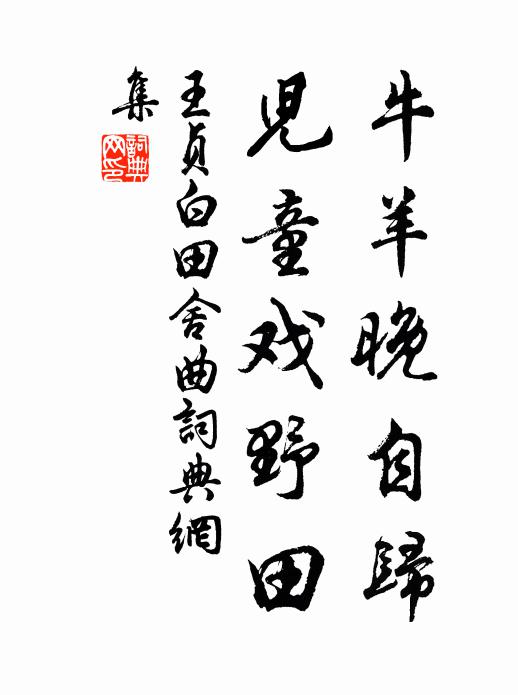 牛羊晚自歸
児童戏野田
王贞白田舍曲詞典網
集
詞典
网印